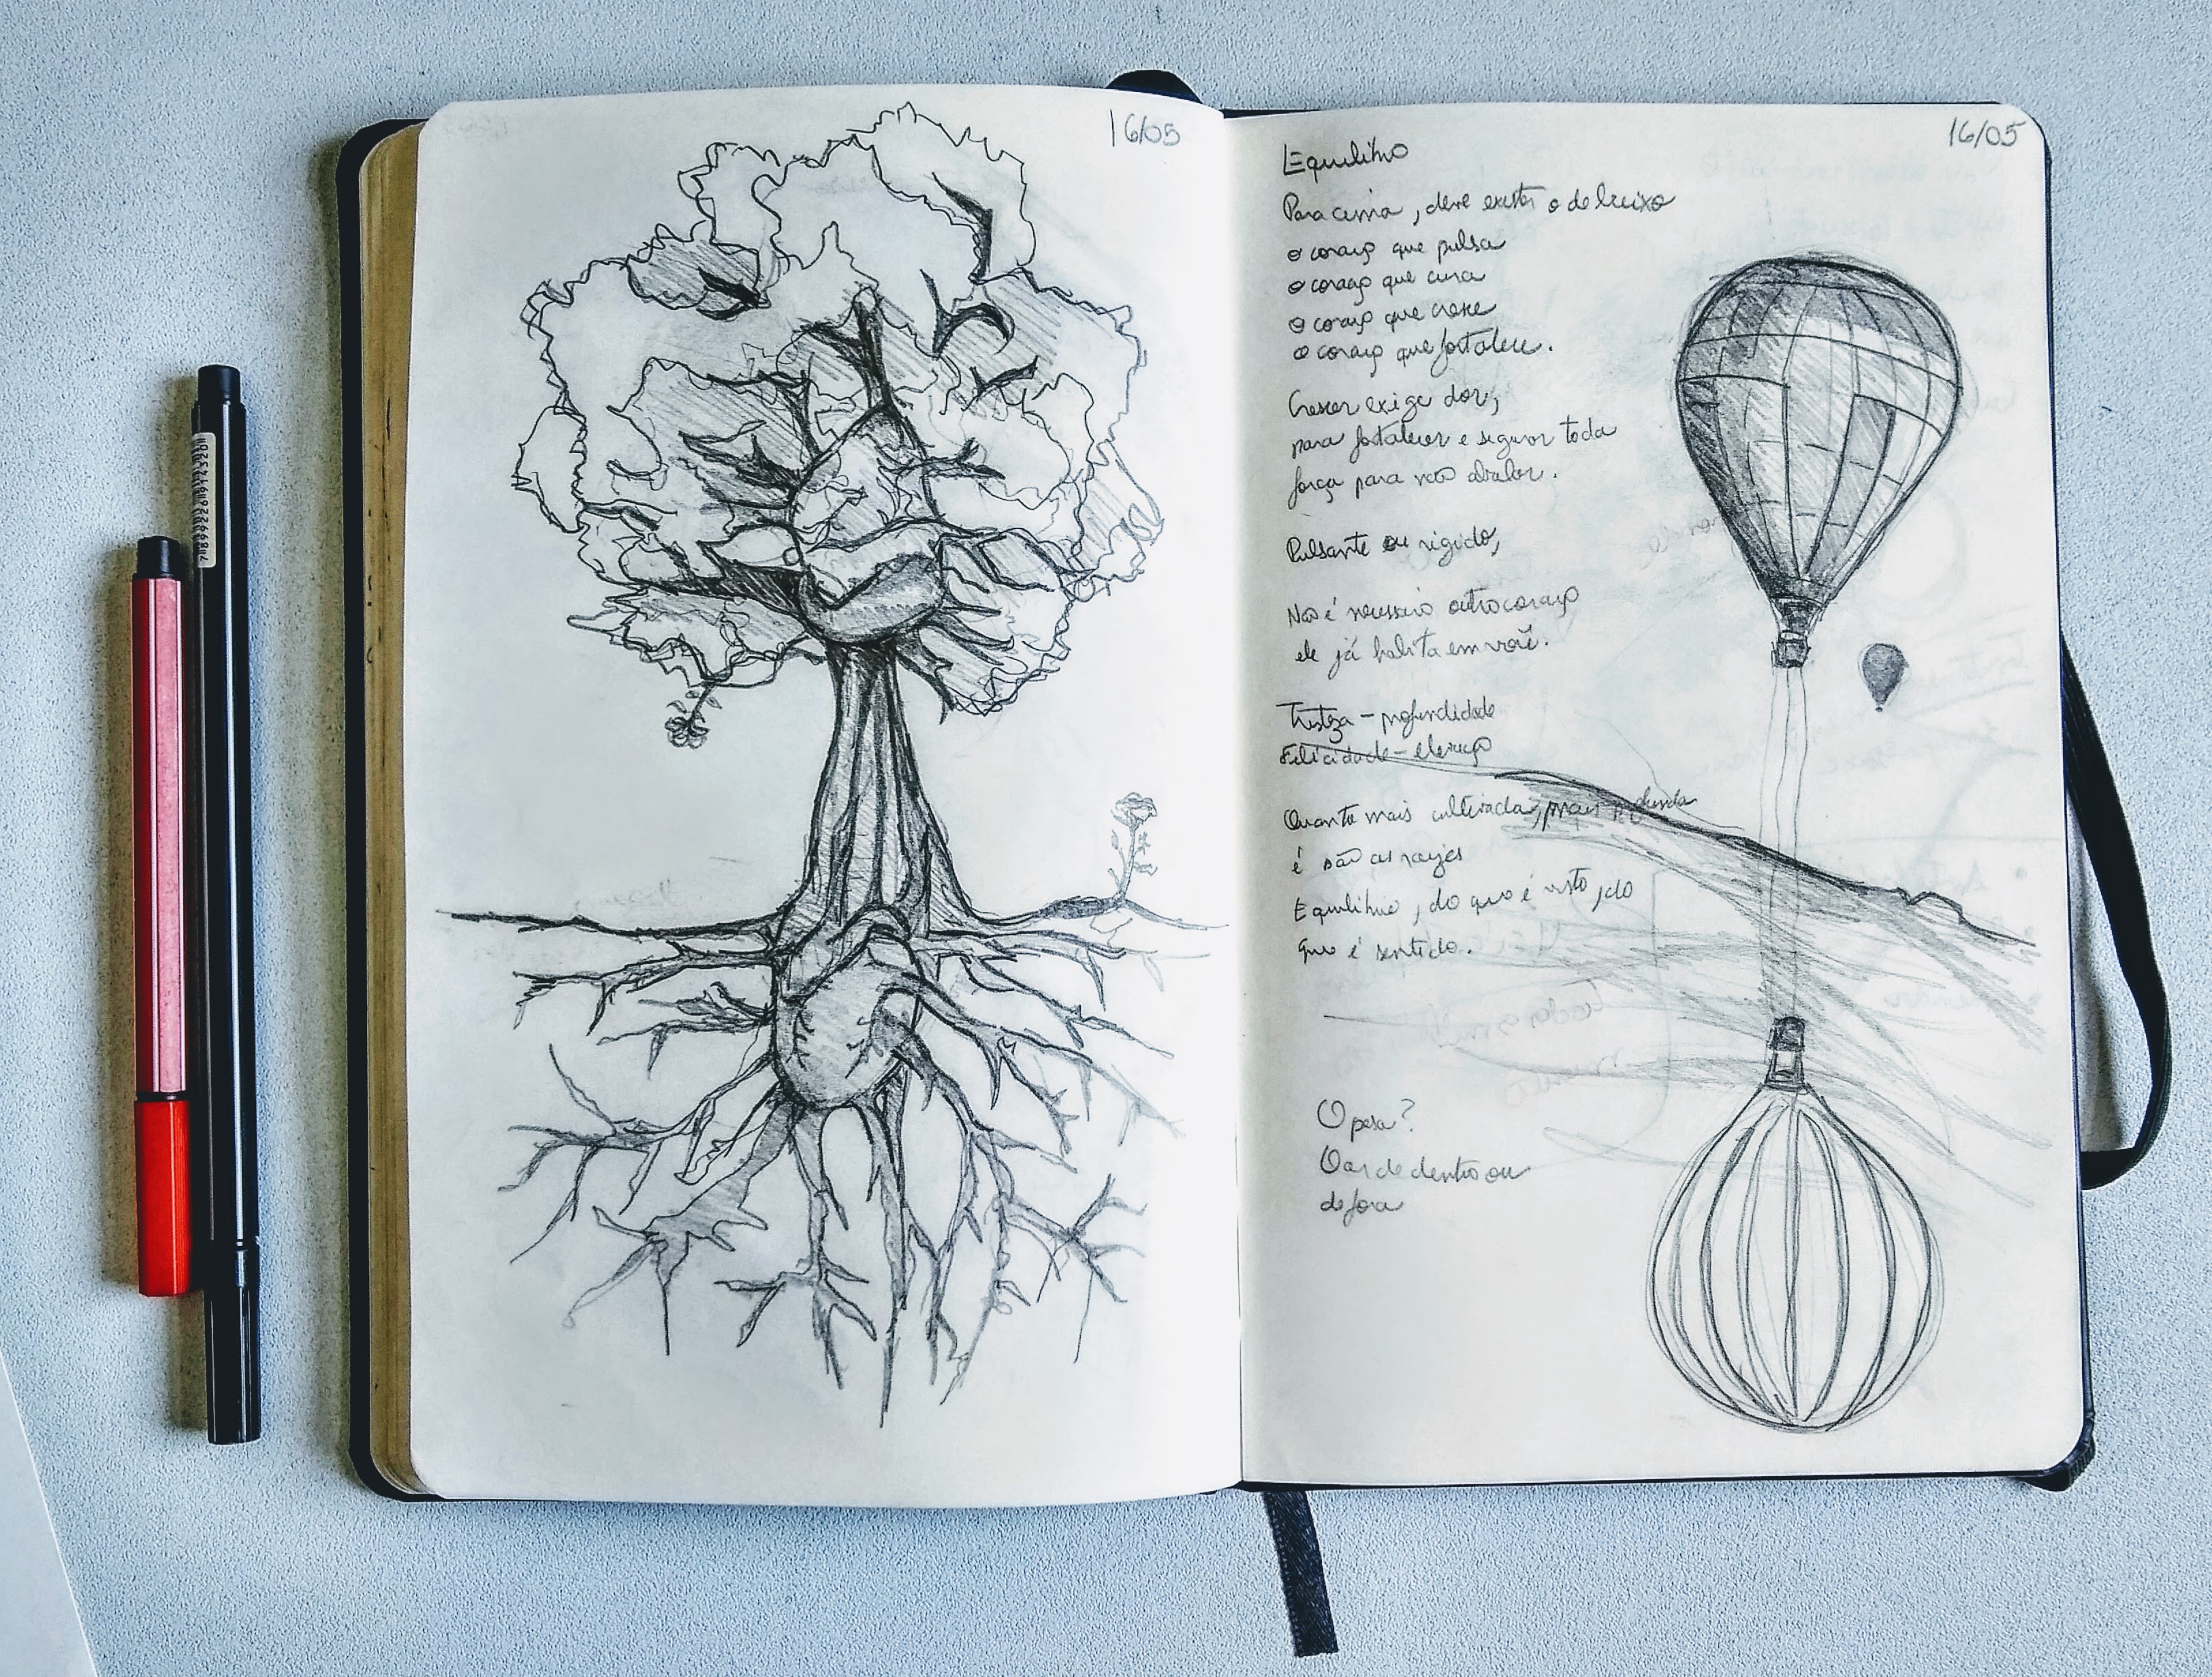 16/05
16/05
Equilibrio
Para cima, deve existir o de baixo
o coração que pulsa
o coração que cura
o coração que cresce
o coração que fortalece.
Crescer exige dor,
para fortalecer e segurar toda
força para não abalar.
Pulsante ou rigido,
Não é necessário outro coração
ele já habita em você.
Tristeza – profundidade
Felicidade – elevação
Quanto mais cultivada, mais profunda
é são as raizes
Equilibrio, do que é visto, do
que é sentido.
O pesa?
O ar de dentro ou
de fora